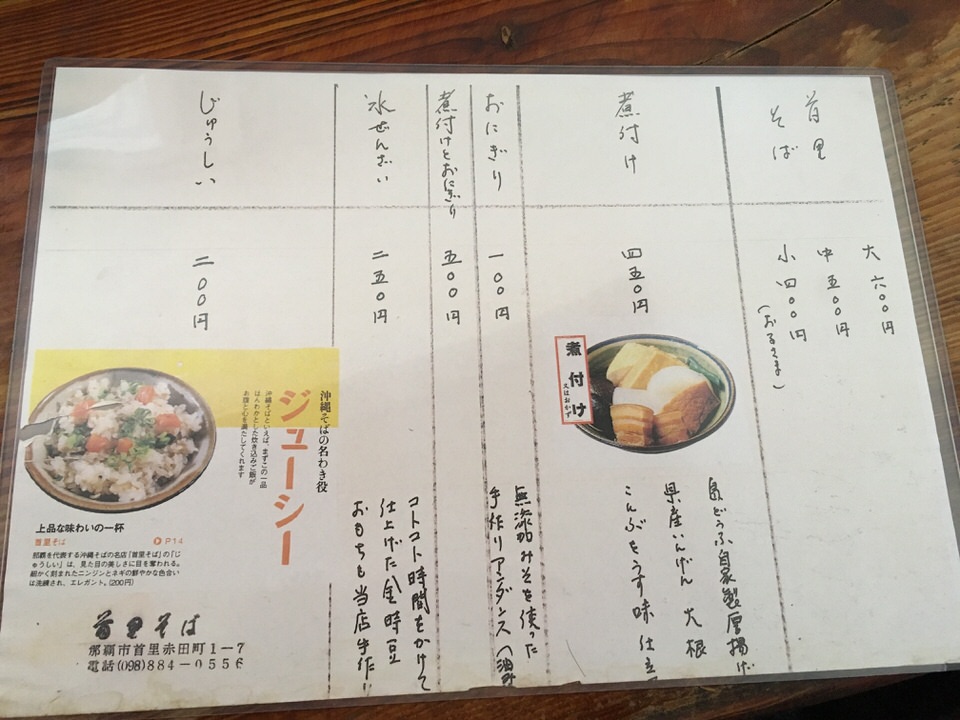 首里
そば
大 六〇〇円
中 五〇〇円
小 四〇〇円
(おるさま)
煮付け
四五〇円
煮付け
又はおかず
島どうふ自家製厚揚げ
県産いんげん 大根
こんぶをうす味仕立
おにぎり
一〇〇円
無添加みそを使った
手作りアンダンス(油み
煮付けとおにぎり
五〇〇円
氷ぜんざい
二五〇円
コトコト時間をかけて
仕上げた金時豆
おもちも当店手作り
じゅうしい
二〇〇円
沖縄そばの名わき役
ジューシー
沖縄そばといえば、まずこの一品
ほんわかとした炊き込みご飯が
お腹と心を満たしてくれます
上品な味わいの一杯
首里そば P14
那覇を代表する沖縄そばの名店「首里そば」の「じ
ゅうしい」は、見た目の美しさに目を奪われる。
細かく刻まれたニンジンとネギの鮮やかな色合い
は洗練され、エレガント。(200円)
首里そば
那覇市首里赤田町1-7
電話(098)884-0556